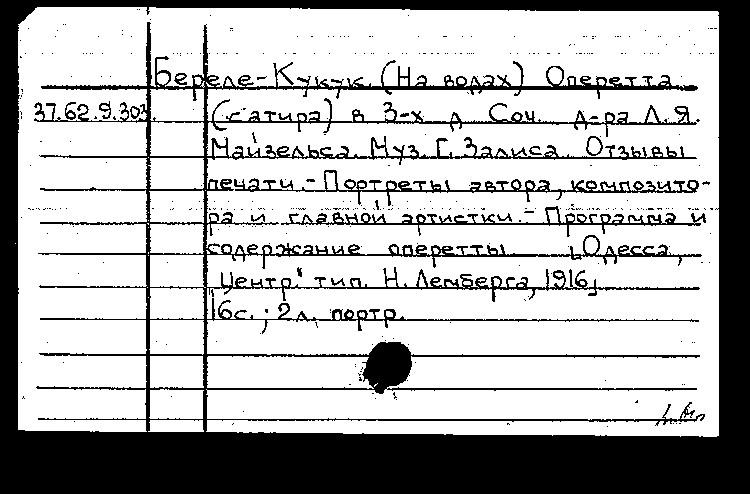 Береле-Кукук (На водах) Оперетта
37.62.9.303. (сатира) в 3-х д Соч. д-ра Л.Я.
Майзельса. Муз. Г. Залиса. Отзывы
печати.-Портреты автора, композито-
ра и главной артистки.-Программа и
содержание оперетты [Одесса,
"Центр." тип. Н. Лемберга, 1916]
16с.; 2л. портр.